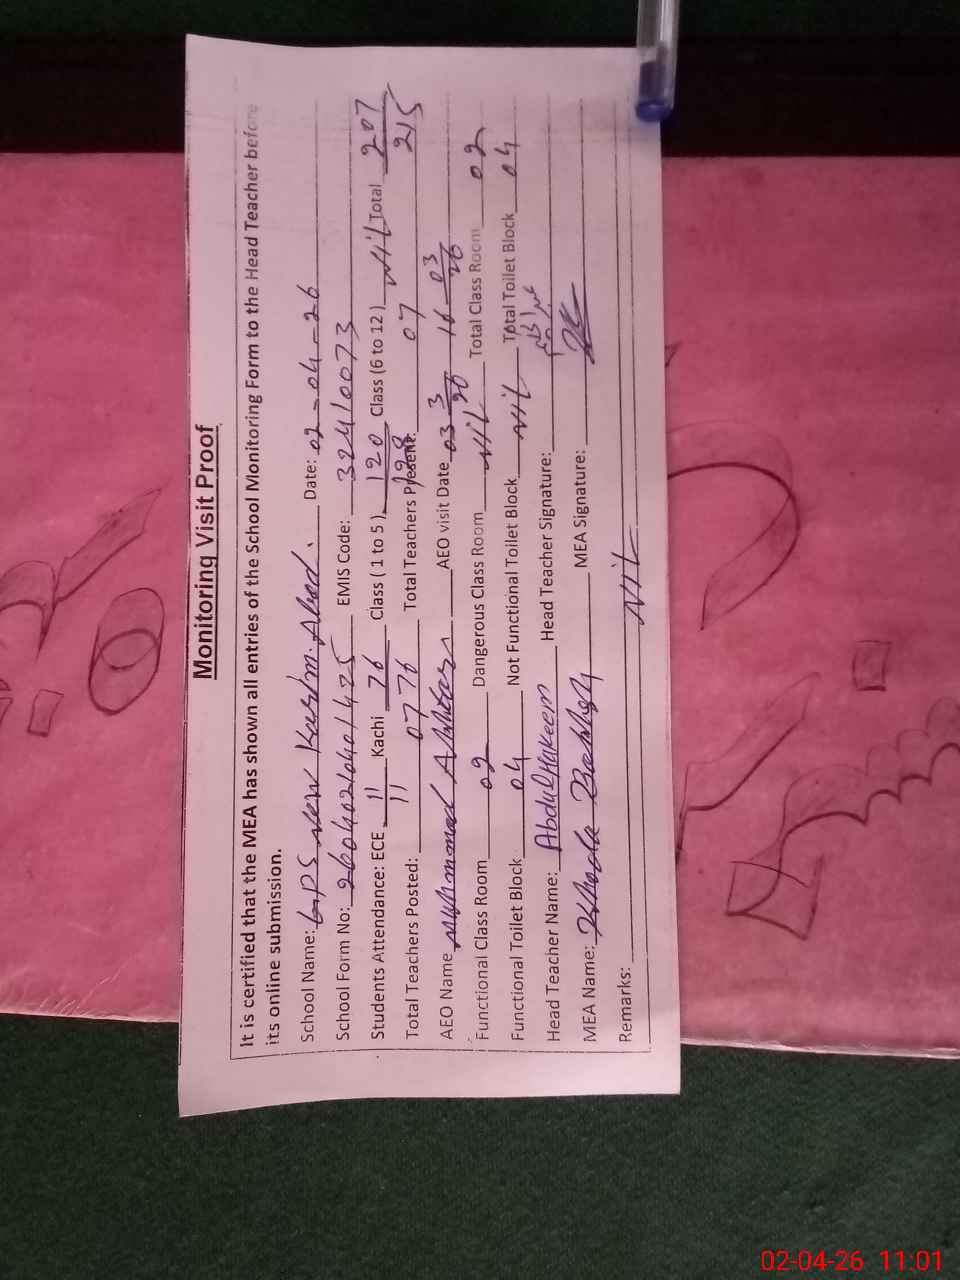 Monitoring Visit Proof
It is certified that the MEA has shown all entries of the School Monitoring Form to the Head Teacher before
its online submission.
School Name: GPS New Karim Abad. Date: 02-04-26
School Form No: 26040216401425 EMIS Code: 32410073
Students Attendance: ECE 11/11 Kachi 76/76 Class (1 to 5) 120/128 Class (6 to 12) Nil Total 207/215
Total Teachers Posted: 07 Total Teachers Present: 07
AEO Name Muhammad Akhtar AEO visit Date 03 3/26 16 03/26
Functional Class Room 02 Dangerous Class Room Nil Total Class Room 02
Functional Toilet Block 04 Not Functional Toilet Block Nil Total Toilet Block 04
Head Teacher Name: Abdul Hakeem Head Teacher Signature:
MEA Name: Khuda Bakhsh MEA Signature:
Remarks: Nil
02-04-26 11:01